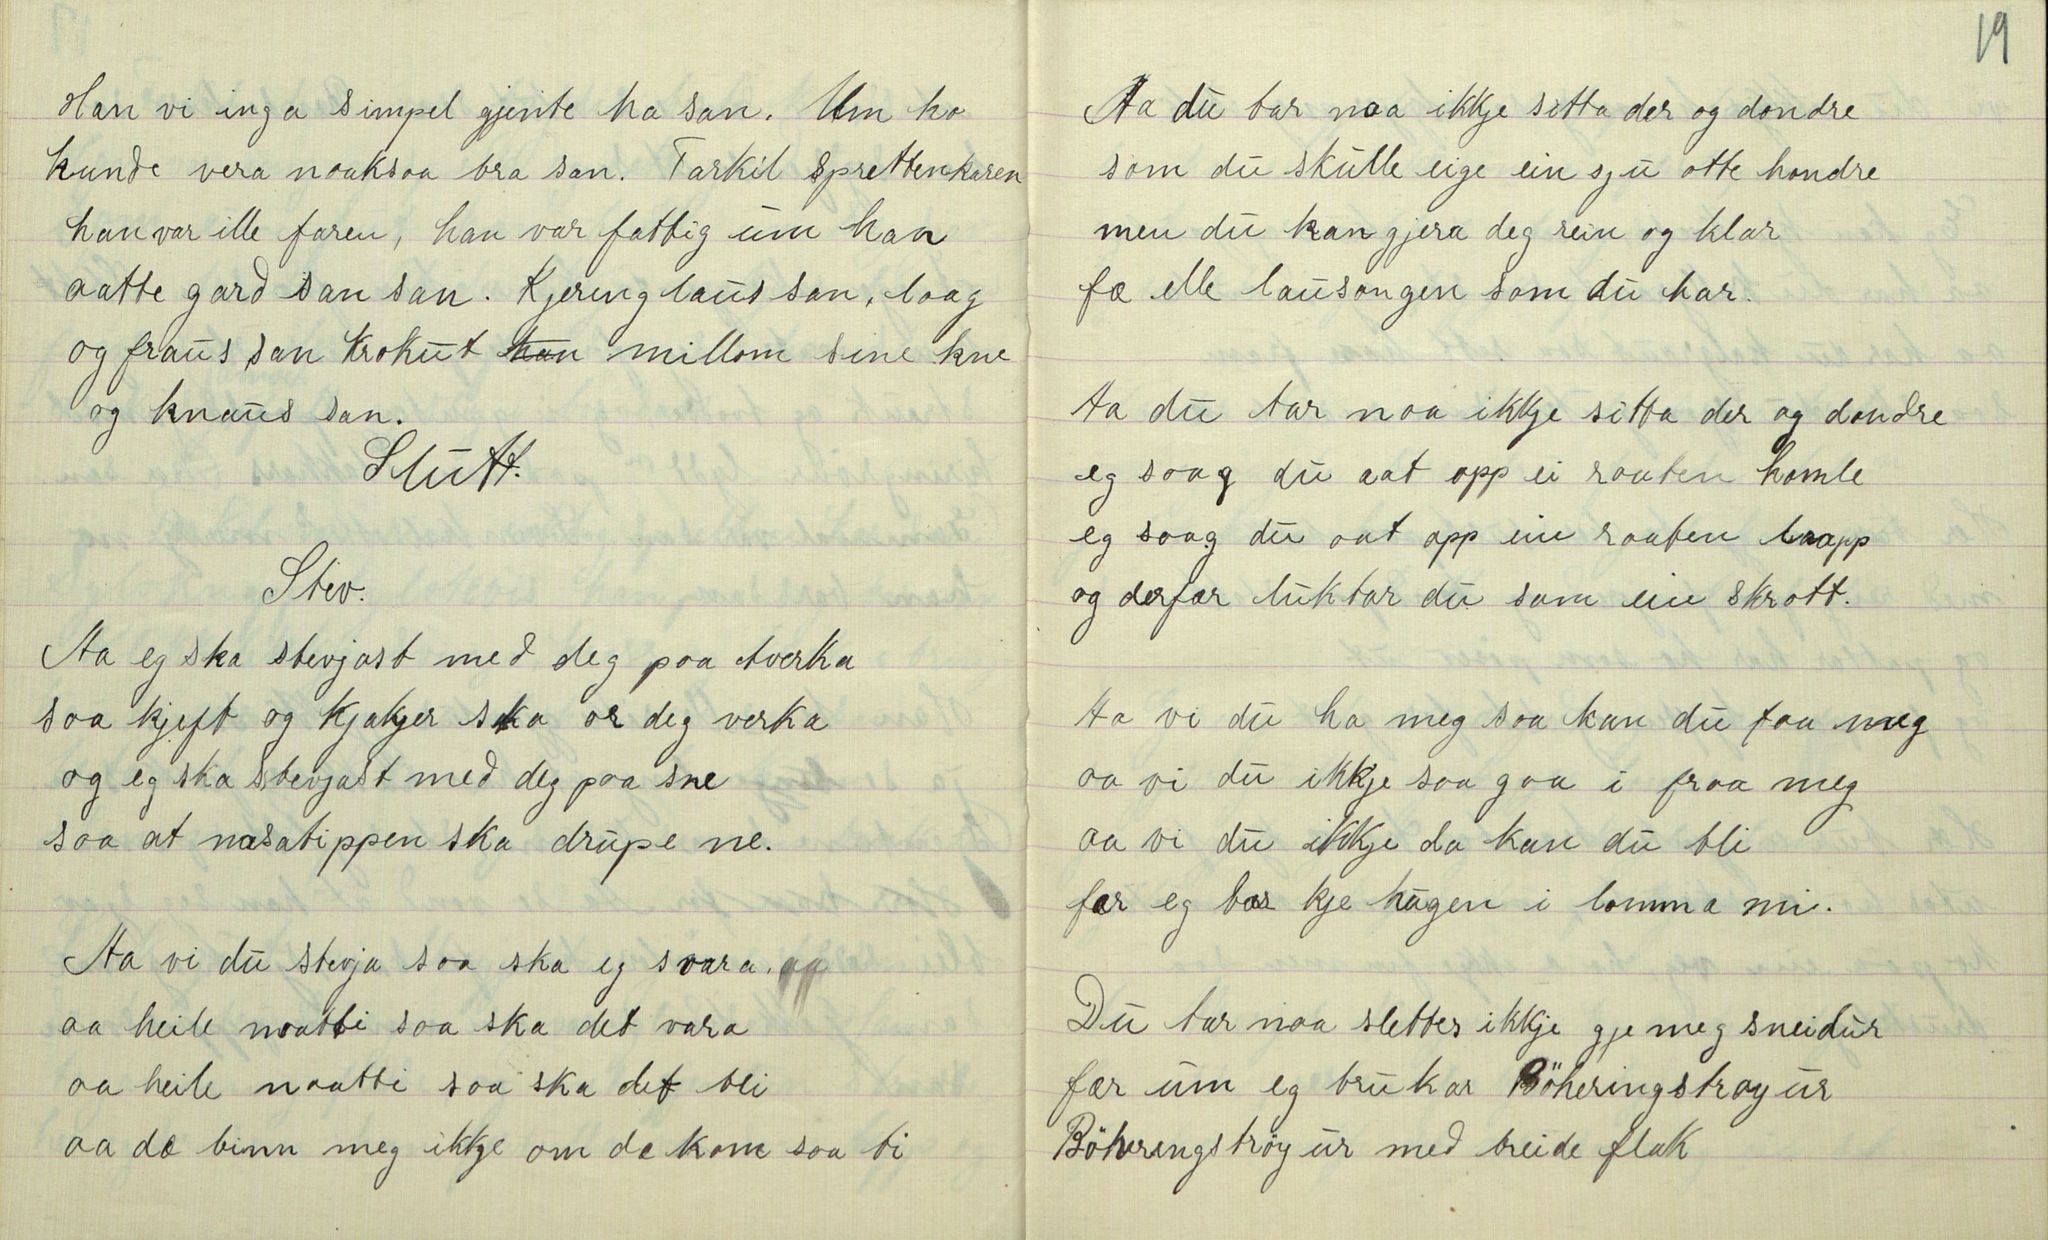 Han vi inga simpel gjente ha san. Um ho
kunde vera noaksaa bra san. Tarkil Sprettenkaren
han var ille faren, han var fattig um han
aatte gard san san. Kjeringlaus san, laag
og fraus san krokut millom sine kne
og knaus san.
Slutt.
Stev.
Aa eg ska stevjast med deg paa tverka
saa kjeft og kjakjer ska or deg verka
og eg ska stevjast med deg paa sne
saa at nasatippen ska drupe ne.
Aa vi du stevja saa ska eg svara.
aa heile naatti saa ska det vara
aa heile naatti saa ska det bli
aa dæ binn meg ikkje om dæ kom saa ti
19
Aa du tar naa ikkje sitta der og dondre
som du skulle eige ein sju otte hondre
men du kan gjera deg rein og klar
fæ elle lausongen som du har.
Aa du tar naa ikkje sitta der og dondre
eg saag du aat opp ei raaten homle
eg saag du aat opp ein raaten
og derfær luktar du som ein skrott.
Aa vi du ha meg saa kan du faa meg
aa vi du ikkje saa gaa i fraa meg
aa vi du ikkje da kan du bli
fær eg bær kje hugen i lomma mi.
Du tar naa slettes ikkje gje meg sneidur
fær um eg brukar Böheringstrøyur
Böheringströyur med breide flak